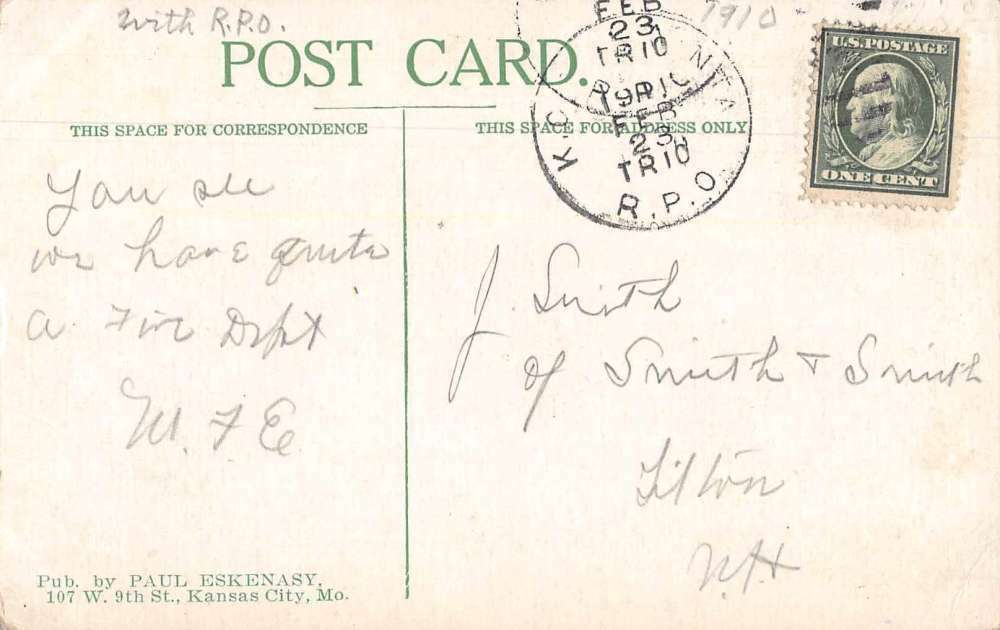 with R.P.O.
1910
POST CARD.
THIS SPACE FOR CORRESPONDENCE
THIS SPACE FOR ADDRESS ONLY
FEB
23
TR10
1910
FEB
23
TR10
R.P.O.
U.S. POSTAGE
ONE CENT
You see
we have quite
a Fire Dept
M. F E
J. Smith
of Smith + Smith
Tilton
N.H
Pub. by PAUL ESKENASY,
107 W. 9th St., Kansas City, Mo.